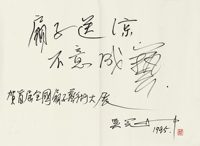 扇子送凉
不意成艺
贺首届全国扇子艺术大展
1995.